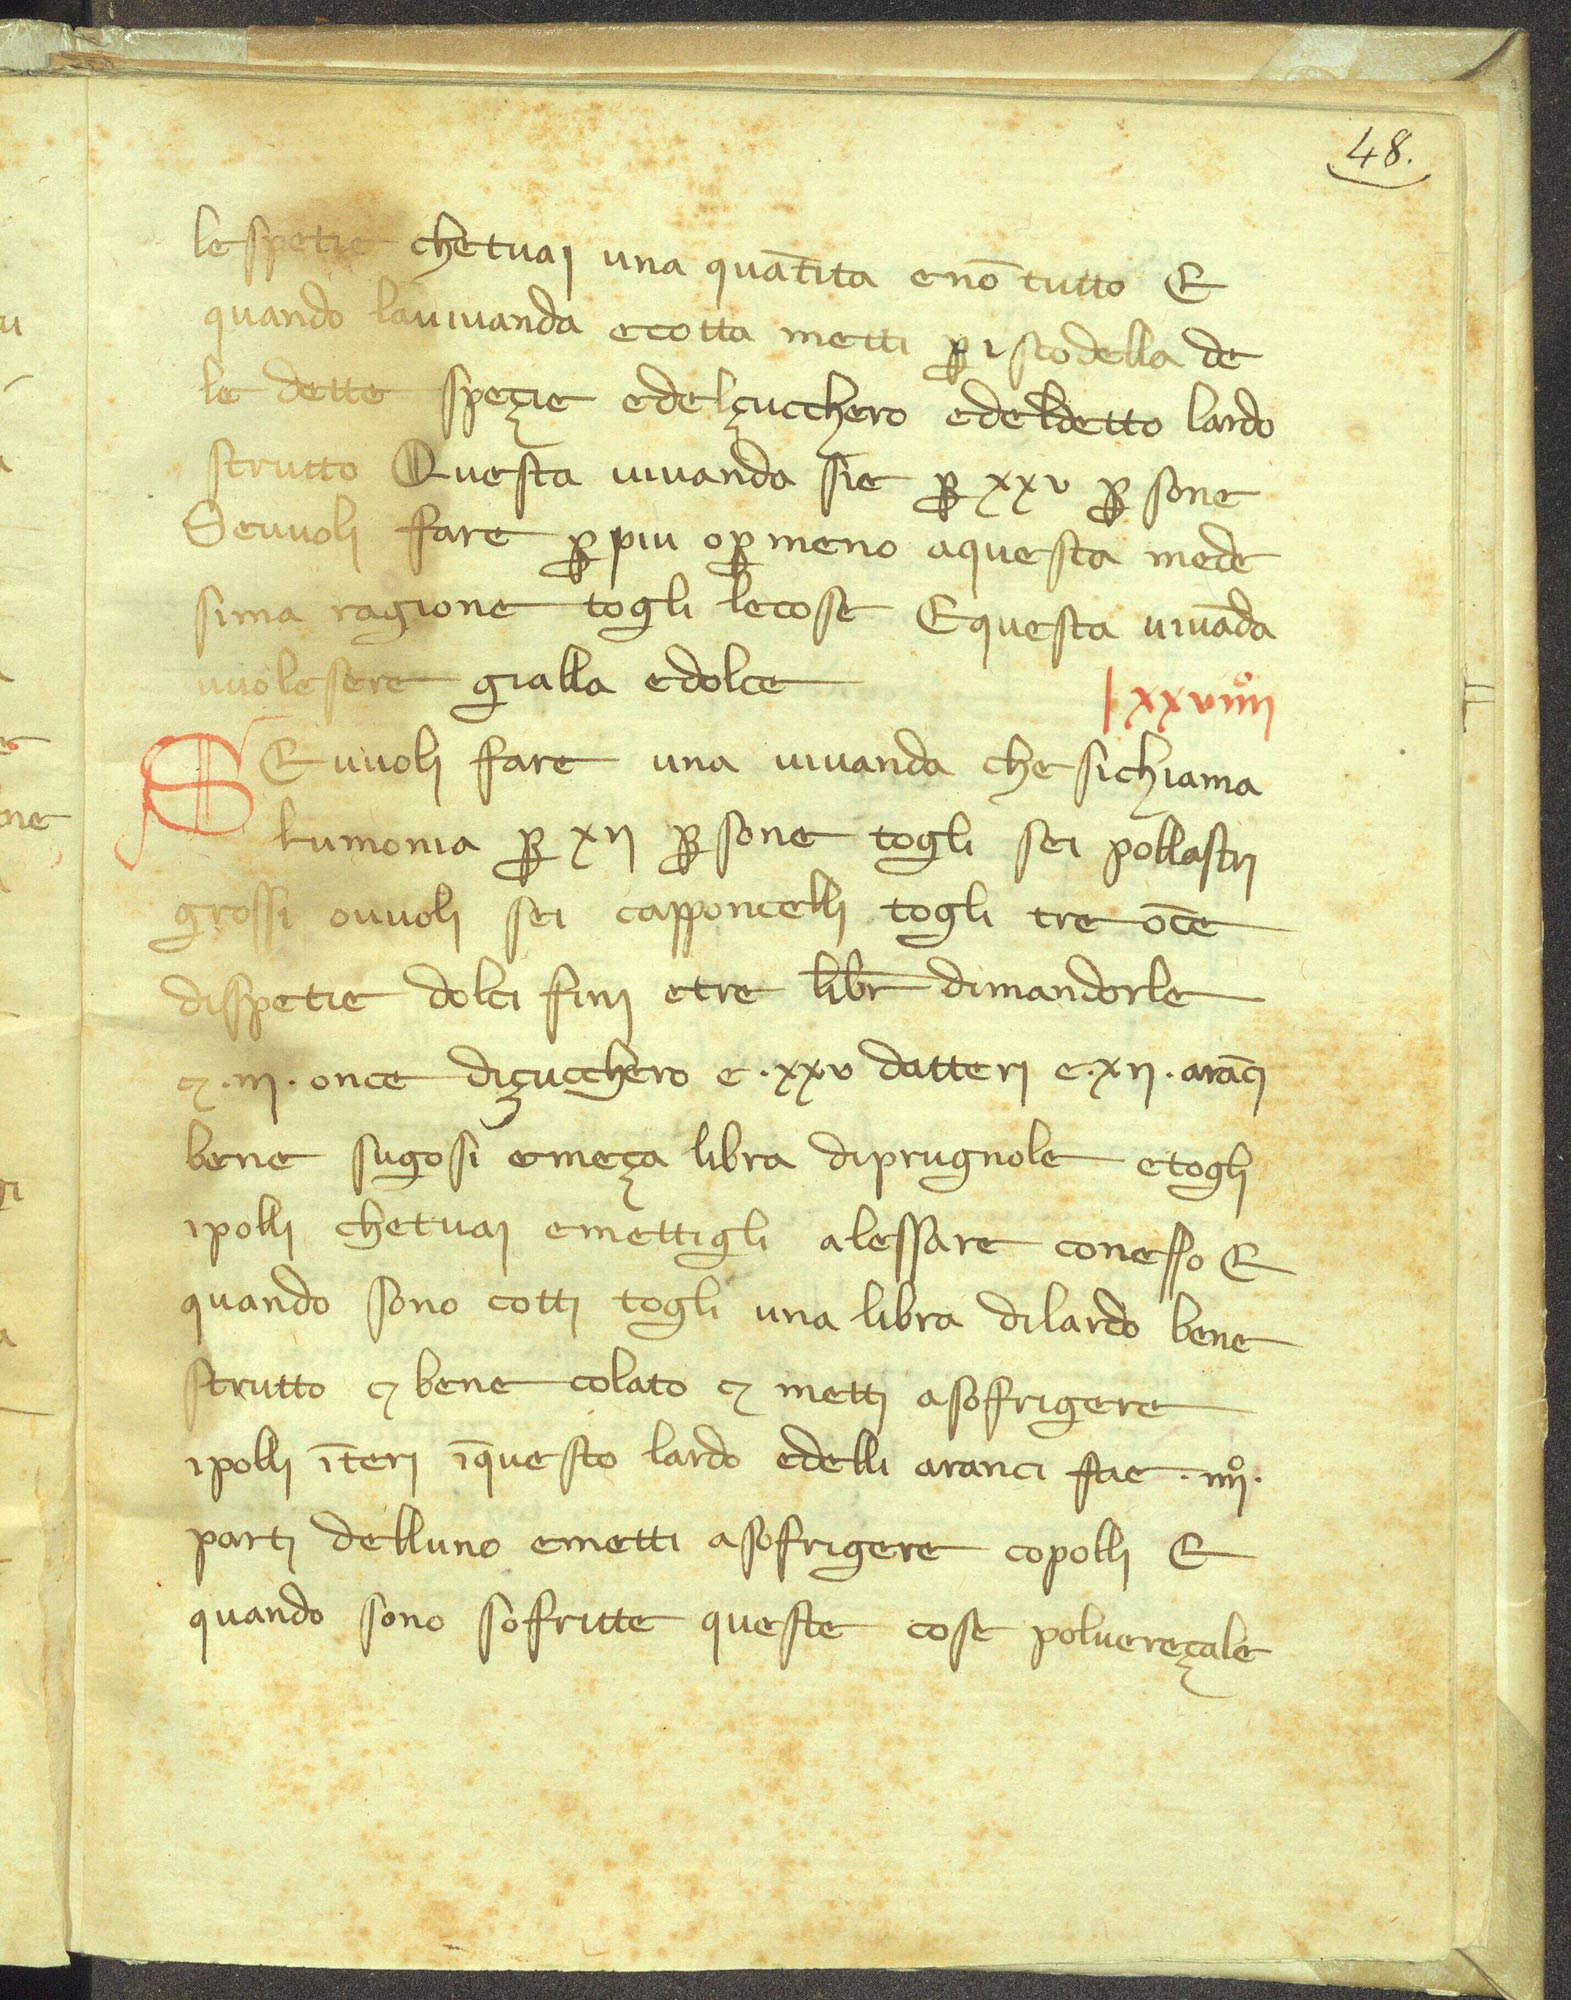 48.
lespetie chetuai una quātita enō tutto E
quando lauiuanda ecotta metti ꝑ i scodella de
le dette speçie edelçucchero edeldetto lardo
strutto Questa uiuanda sie ꝑ xxv ꝑsone
Seuuoli fare ꝑ piu oꝑ meno aquesta mede
sima ragione togli lecose Equesta uiuāda
uuolesere gialla edolce
lxxviiiiº
SE uuoli fare una uiuanda che sichiama
lumonia ꝑ xij ꝑsone togli sei pollastri
grossi ouuoli sei capponcelli togli tre oc̄e
dispetie dolci fini etre libr̄ dimandorle
⁊ .iij. once diçucchero e .xxv datteri e .xij. arāci
bene sugosi emeça libra diprugnole etogli
ipolli chetuai emettigli alessare conesso E
quando sono cotti togli una libra dilardo bene
strutto ⁊ bene colato ⁊ metti asofrigere
ipolli īteri īquesto lardo edelli aranci fae .iiijº.
parti delluno emetti asofrigere copolli E
quando sono sofritte queste cose poluereçale